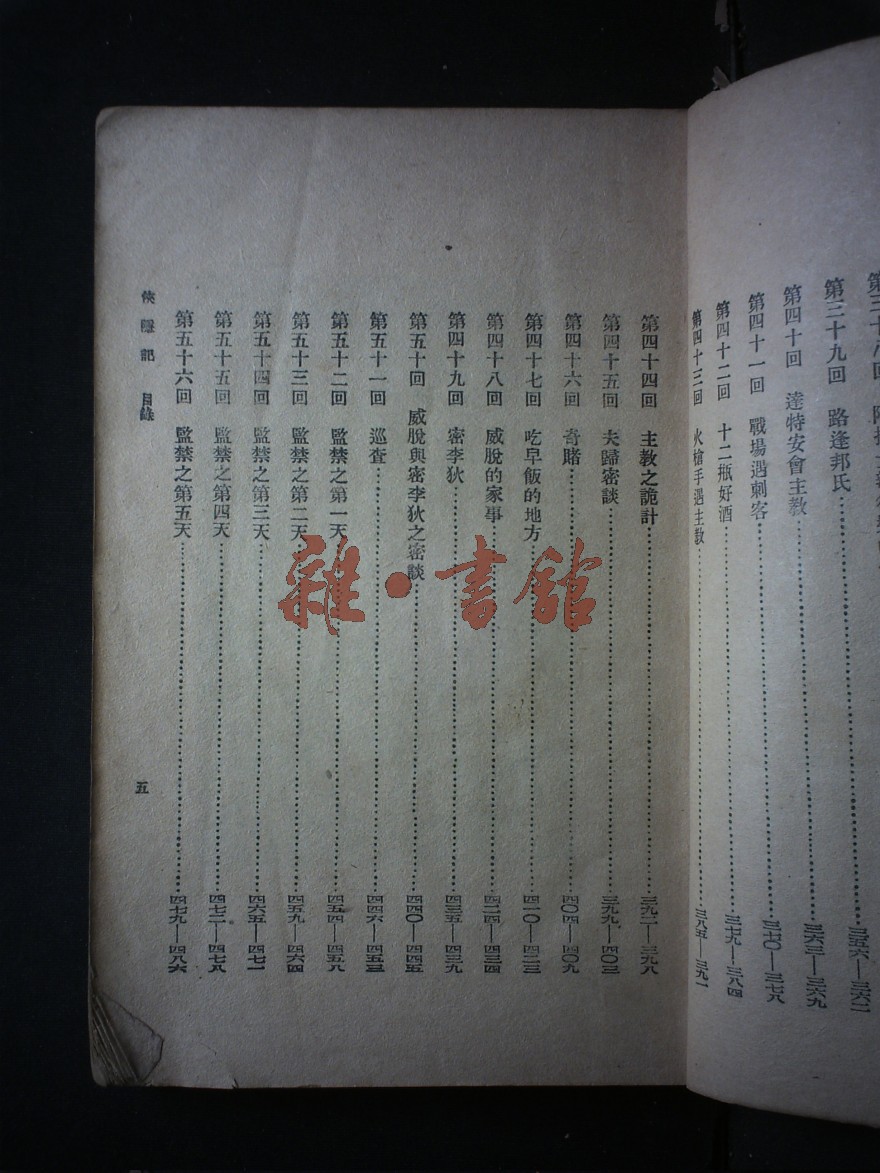 第三十九回 路逢邦氏
第四十回 達特安會主教 三六三—三六九
第四十一回 戰場遇刺客 三七〇—三七八
第四十二回 十二瓶好酒 三七九—三八四
第四十三回 火槍手遇主教 三八五—三九一
第四十四回 主教之詭計 三九二—三九八
第四十五回 夫歸密談 三九九—四〇三
第四十六回 奇賭 四〇四—四〇九
第四十七回 吃早飯的地方 四一〇—四二三
第四十八回 威脫的家事 四二四—四三四
第四十九回 密李狄 四三五—四三九
第五十回 威脫與密李狄之密談 四四〇—四四五
第五十一回 巡查 四四六—四五三
第五十二回 監禁之第一天 四五四—四五八
第五十三回 監禁之第二天 四五九—四六四
第五十四回 監禁之第三天 四六五—四七一
第五十五回 監禁之第四天 四七二—四七八
第五十六回 監禁之第五天 四七九—四八六
俠隱記 目錄 五
雜·書館